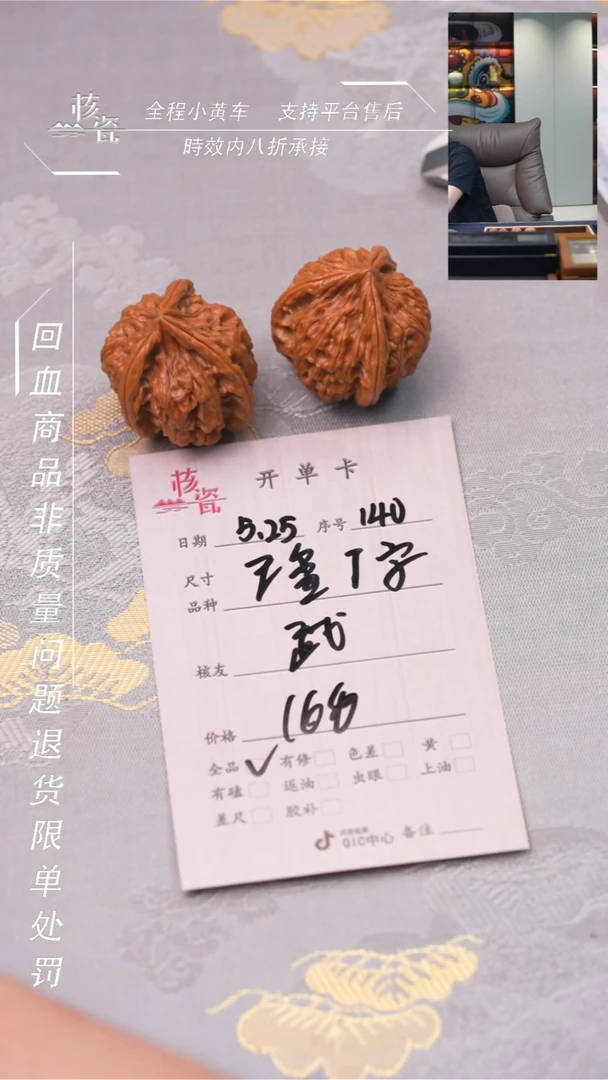 核瓷
全程小黄车 支持平台售后
時效内八折承接
回血商品非质量问题退货限单处罚
核瓷 开单卡
日期 5.25 序号 140
尺寸
品种
核友
价格 168
全品 ✓ 有修 色差 黄
有磕 返油 虫眼 上油
差尺 胶补
QIC中心 备注